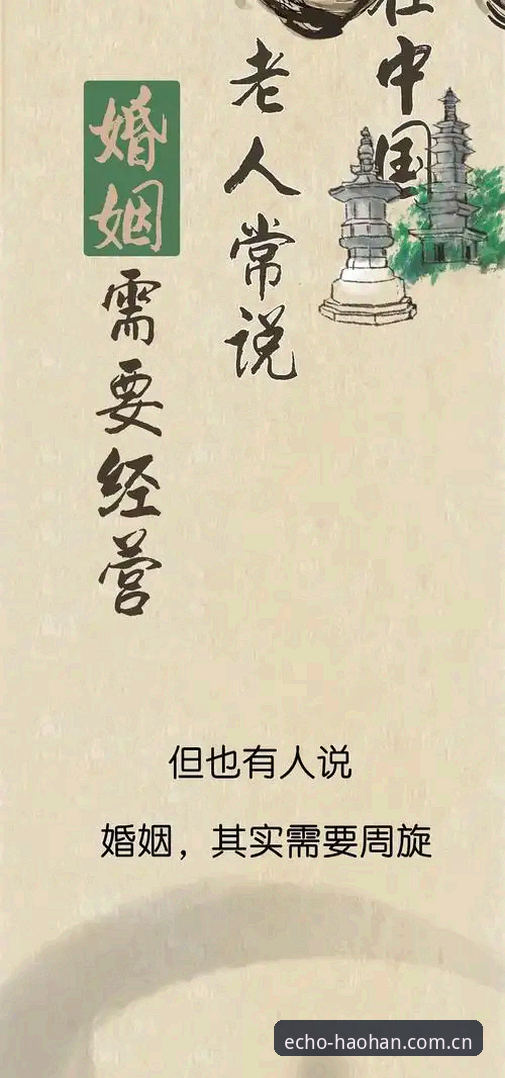 在中国
老人常说
婚姻需要经营
但也有人说
婚姻，其实需要周旋
echo-haohan.com.cn